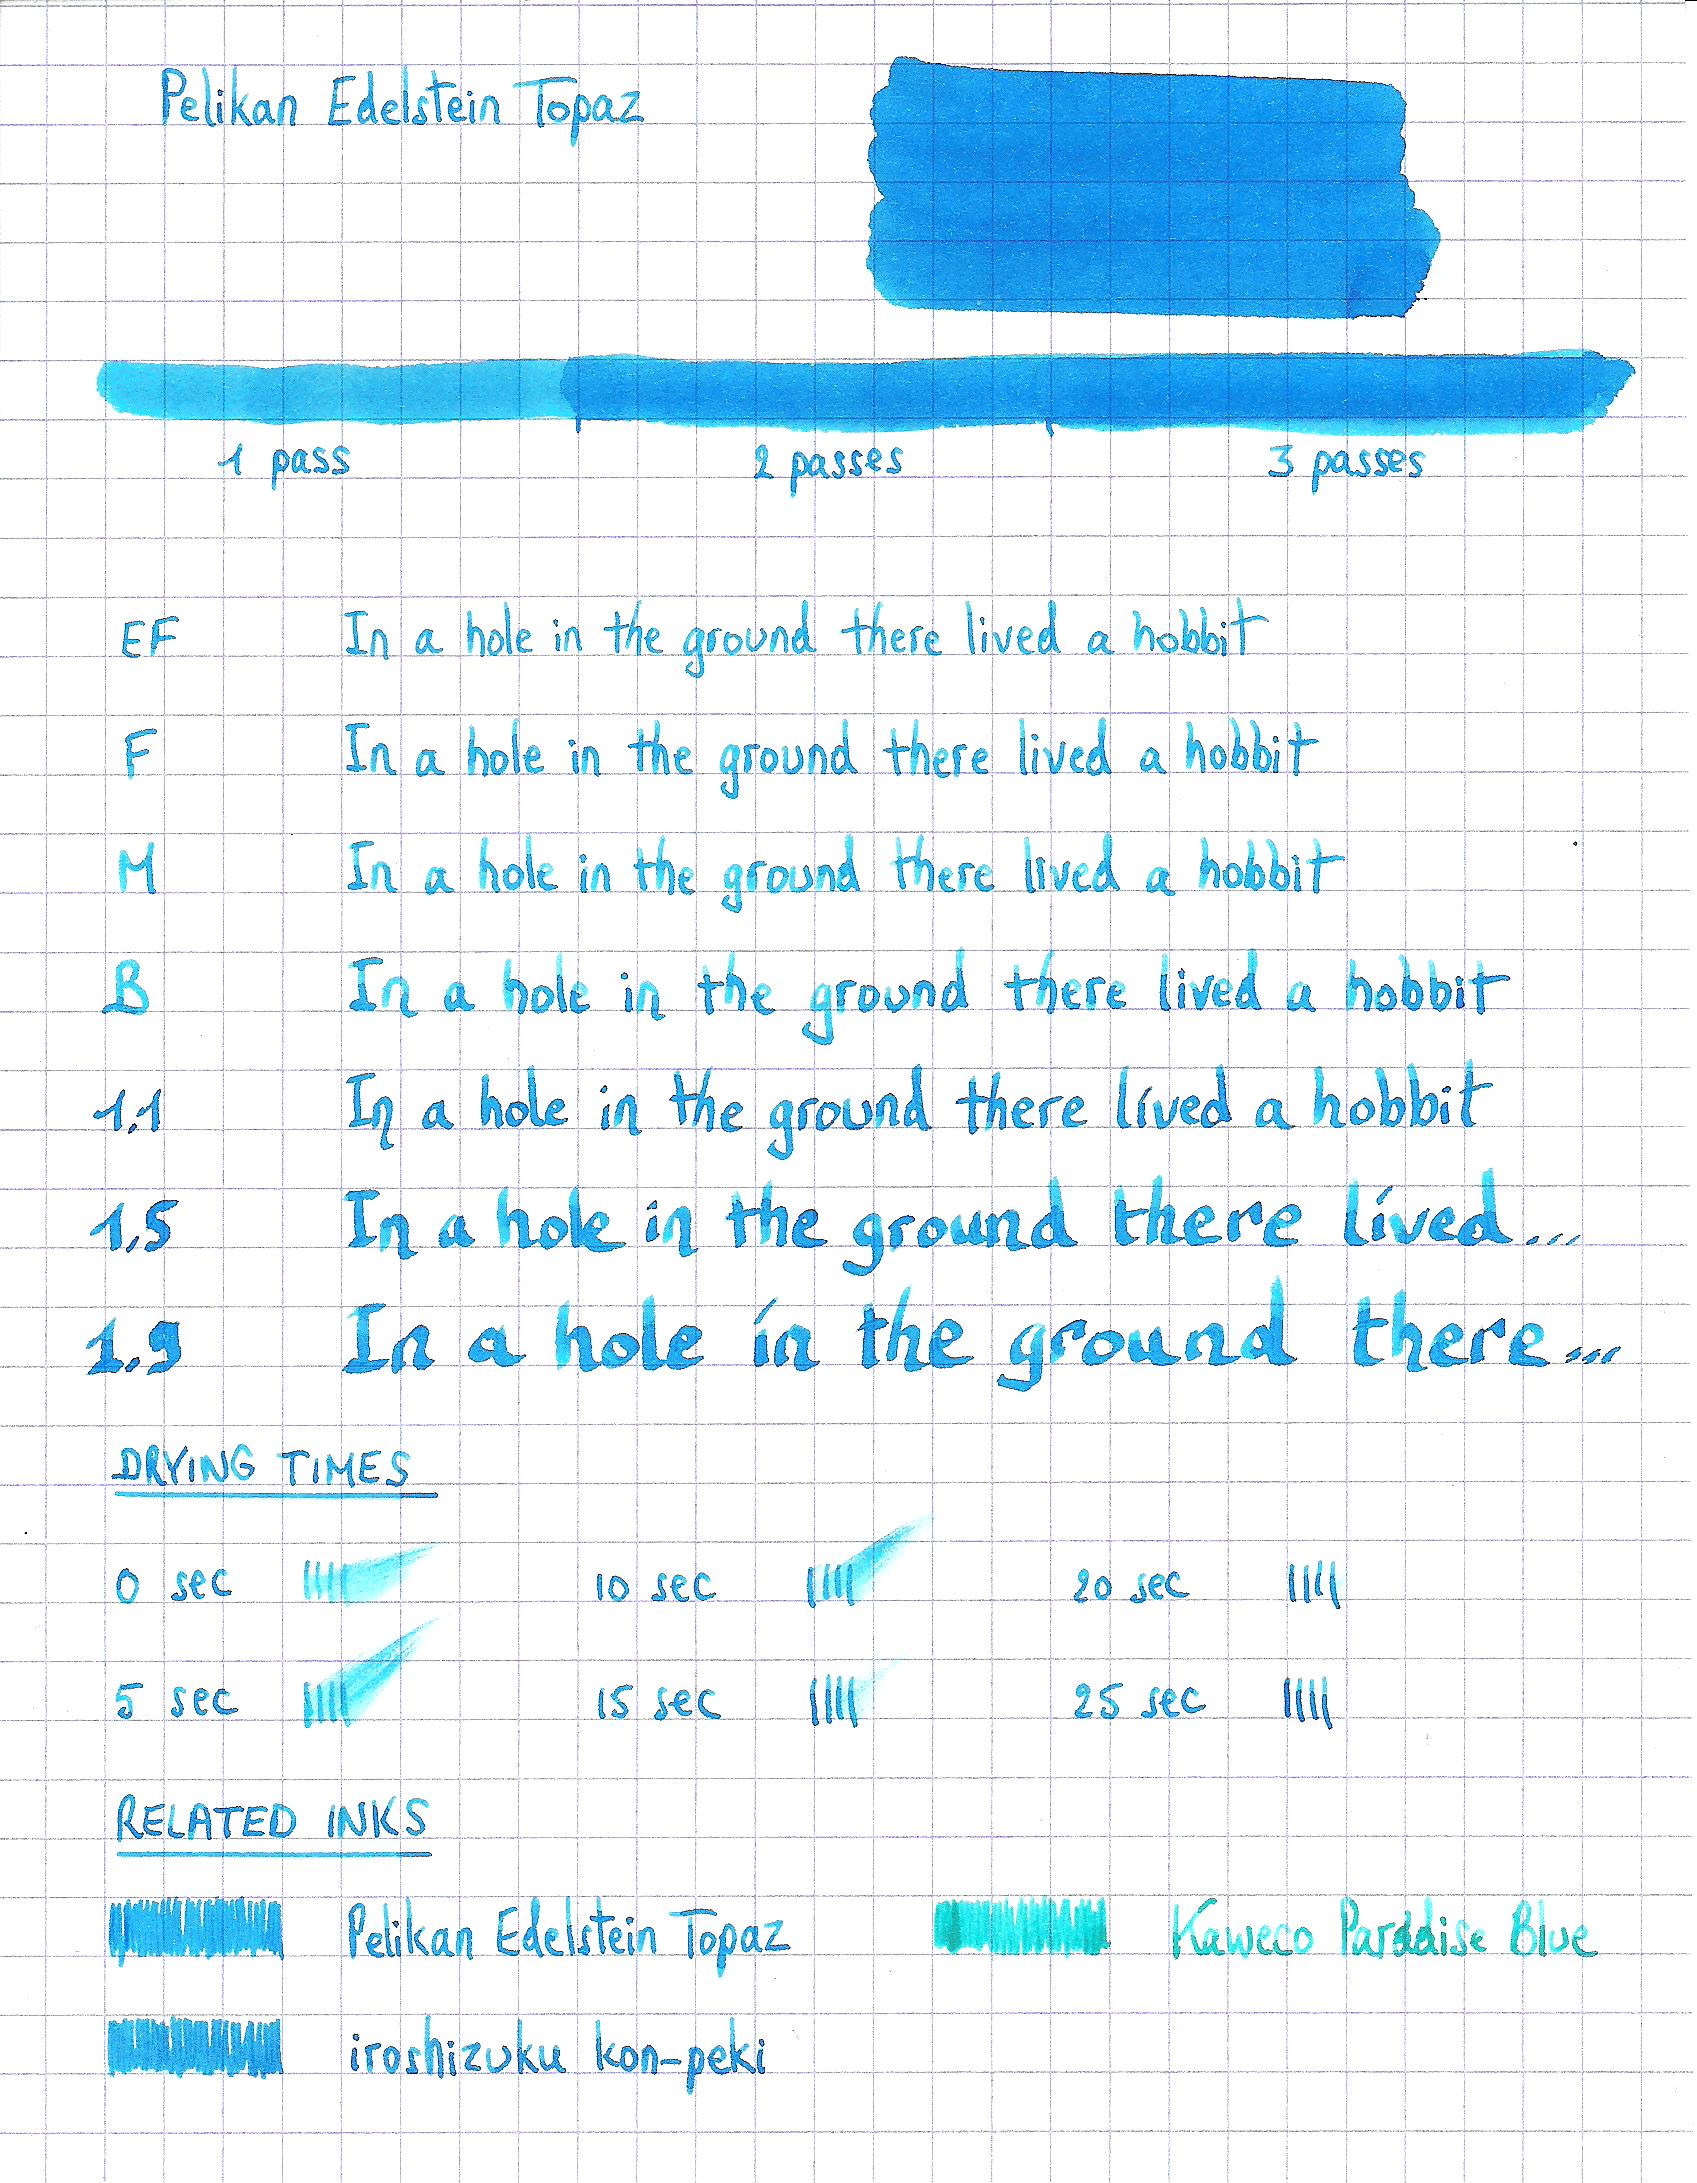 Pelikan Edelstein Topaz
1 pass 2 passes 3 passes
EF In a hole in the ground there lived a hobbit
F In a hole in the ground there lived a hobbit
M In a hole in the ground there lived a hobbit
B In a hole in the ground there lived a hobbit
1.1 In a hole in the ground there lived a hobbit
1.5 In a hole in the ground there lived...
1.9 In a hole in the ground there...
DRYING TIMES
0 sec 10 sec 20 sec
5 sec 15 sec 25 sec
RELATED INKS
Pelikan Edelstein Topaz Kaweco Paradise Blue
iroshizuku kon-peki